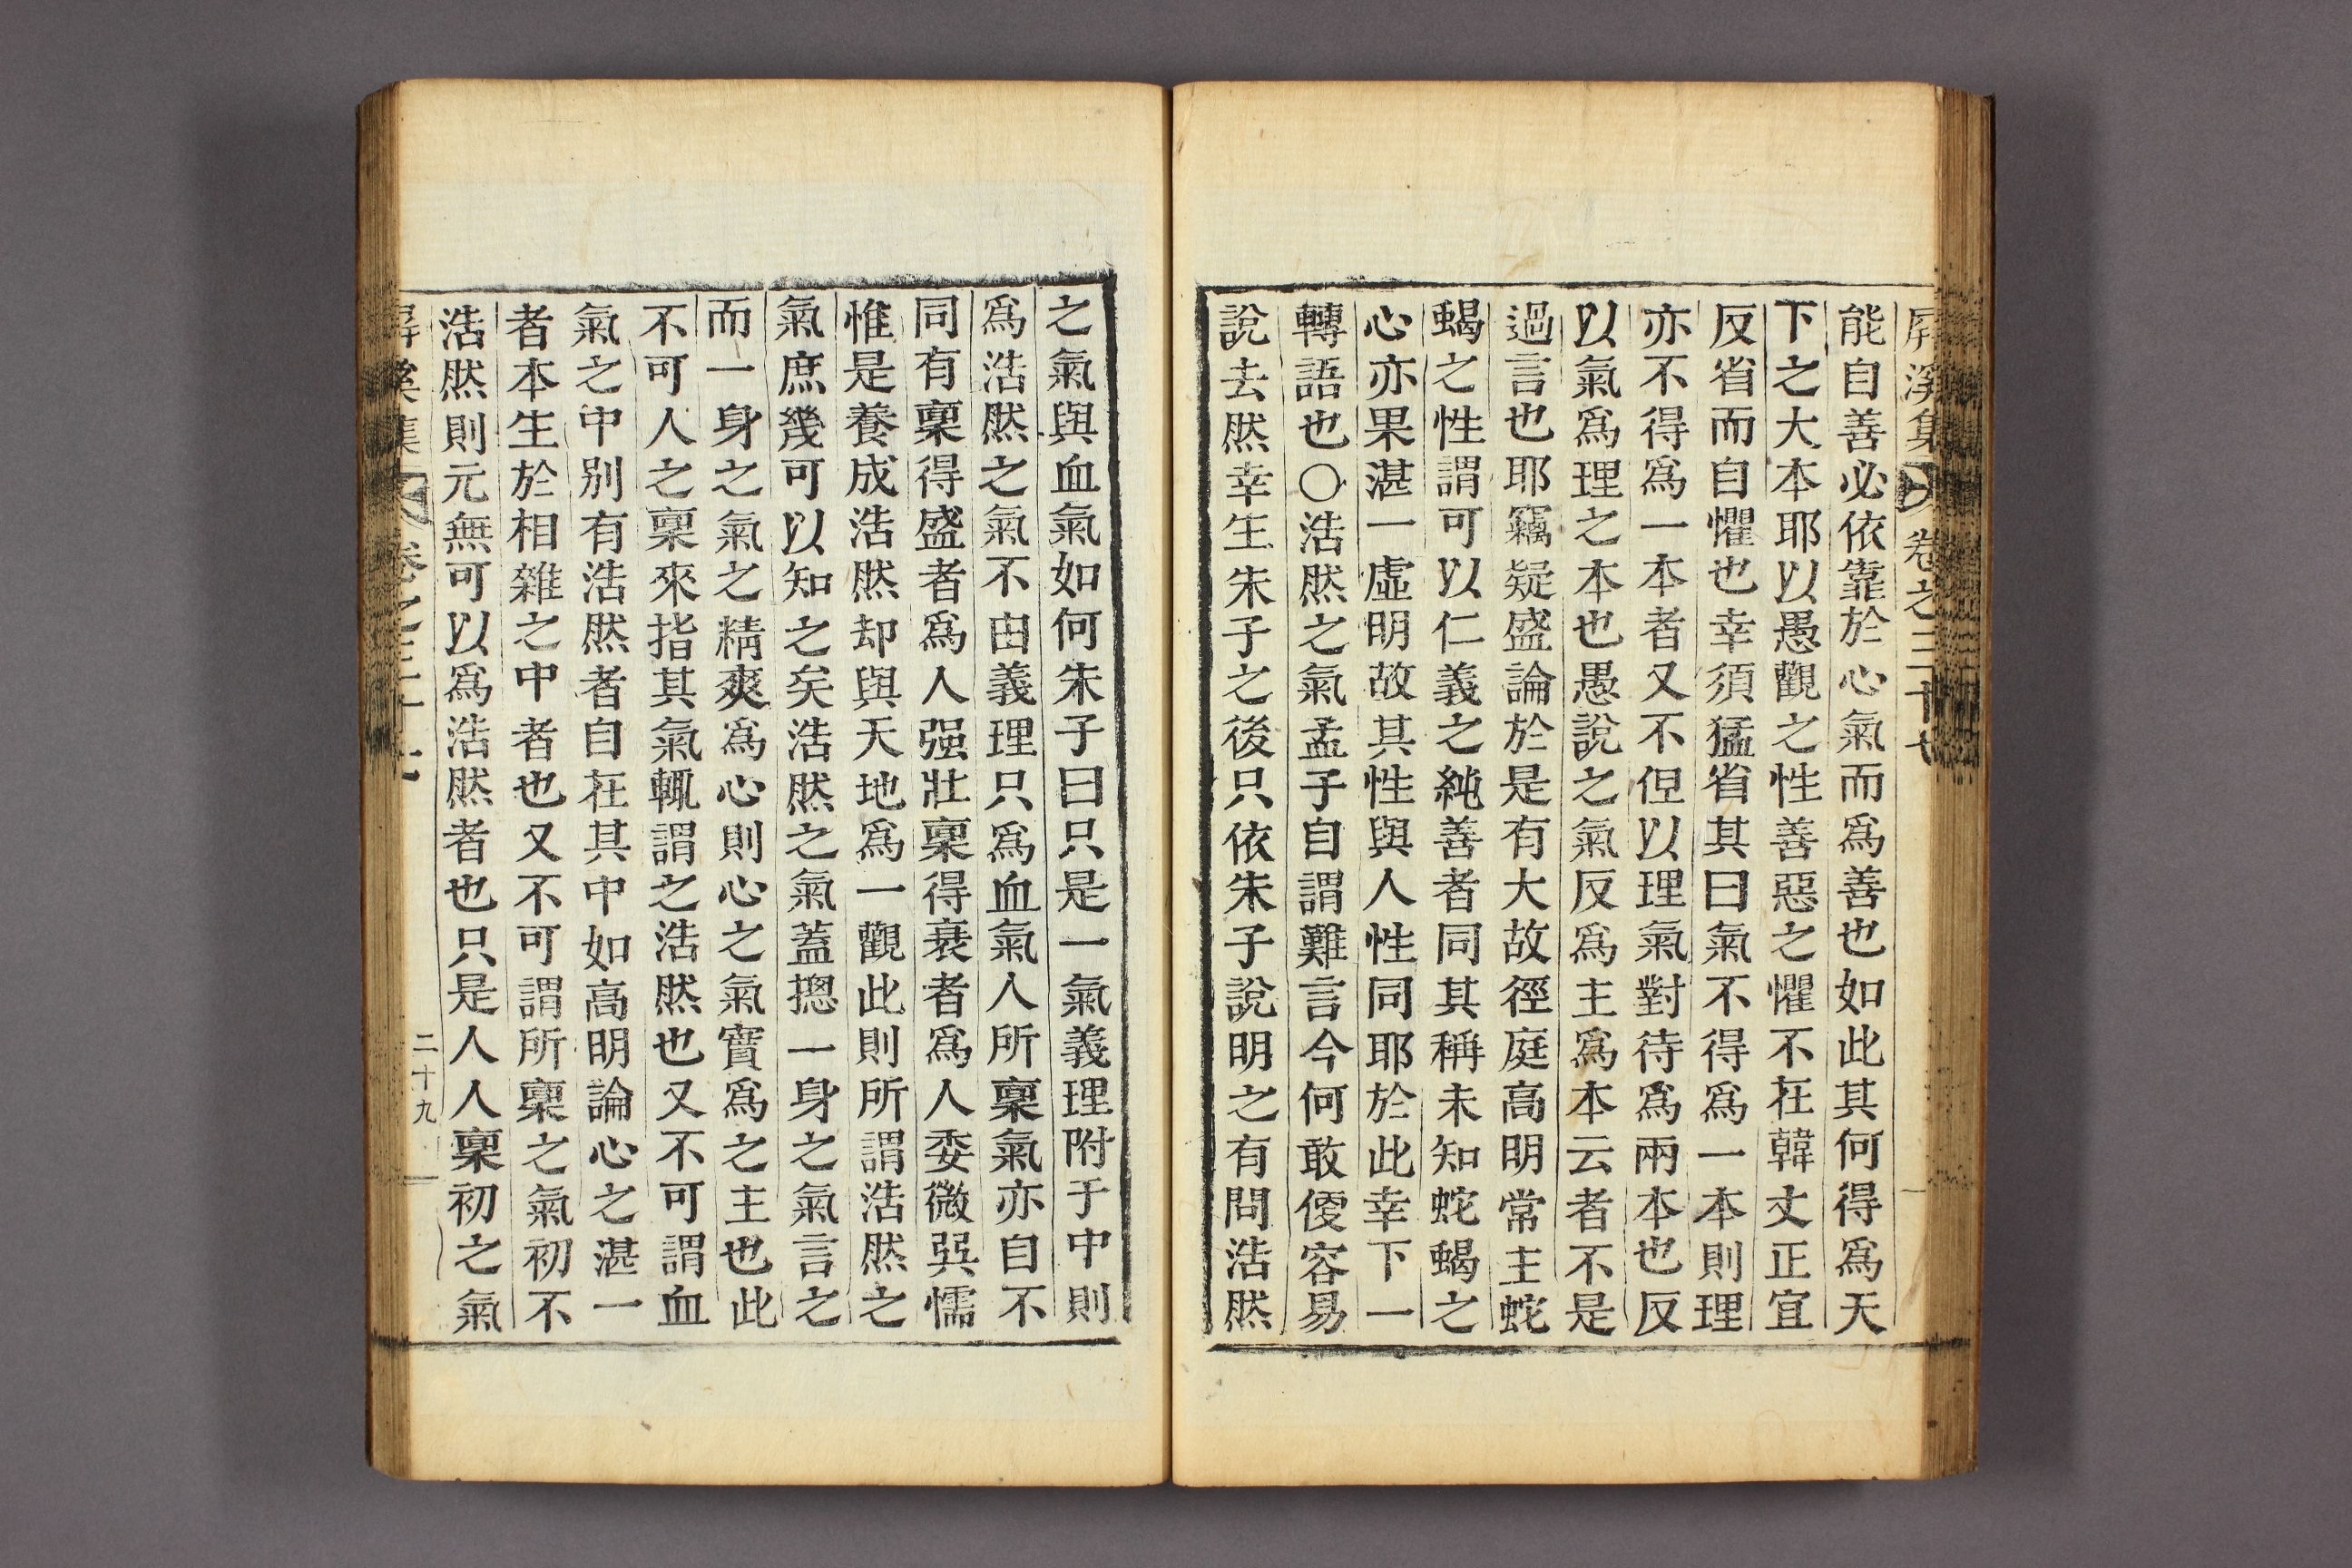 屛溪集 卷之三十七
能自善必依靠於心氣而爲善也如此其何得爲天
下之大本耶以愚觀之性善惡之懼不在韓丈正宜
反省而自懼也幸須猛省其曰氣不得爲一本則理
亦不得爲一本者又不但以理氣對待爲兩本也反
以氣爲理之本也愚說之氣反爲主爲本云者不是
過言也耶竊疑盛論於是有大故徑庭高明常主蛇
蝎之性謂可以仁義之純善者同其稱未知蛇蝎之
心亦果湛一虛明故其性與人性同耶於此幸下一
轉語也○浩然之氣孟子自謂難言今何敢優容易
說去然幸生朱子之後只依朱子說明之有問浩然
之氣與血氣如何朱子曰只是一氣義理附于中則
爲浩然之氣不由義理只爲血氣人所稟氣亦自不
同有稟得盛者爲人强壯稟得衰者爲人委微巽懦
惟是養成浩然却與天地爲一觀此則所謂浩然之
氣庶幾可以知之矣浩然之氣蓋摠一身之氣言之
而一身之氣之精爽爲心則心之氣實爲之主也此
不可人之稟來指其氣輒謂之浩然也又不可謂血
氣之中別有浩然者自在其中如高明論心之湛一
者本生於相雜之中者也又不可謂所稟之氣初不
浩然則元無可以爲浩然者也只是人人稟初之氣
屛溪集 卷之三十七 二十九